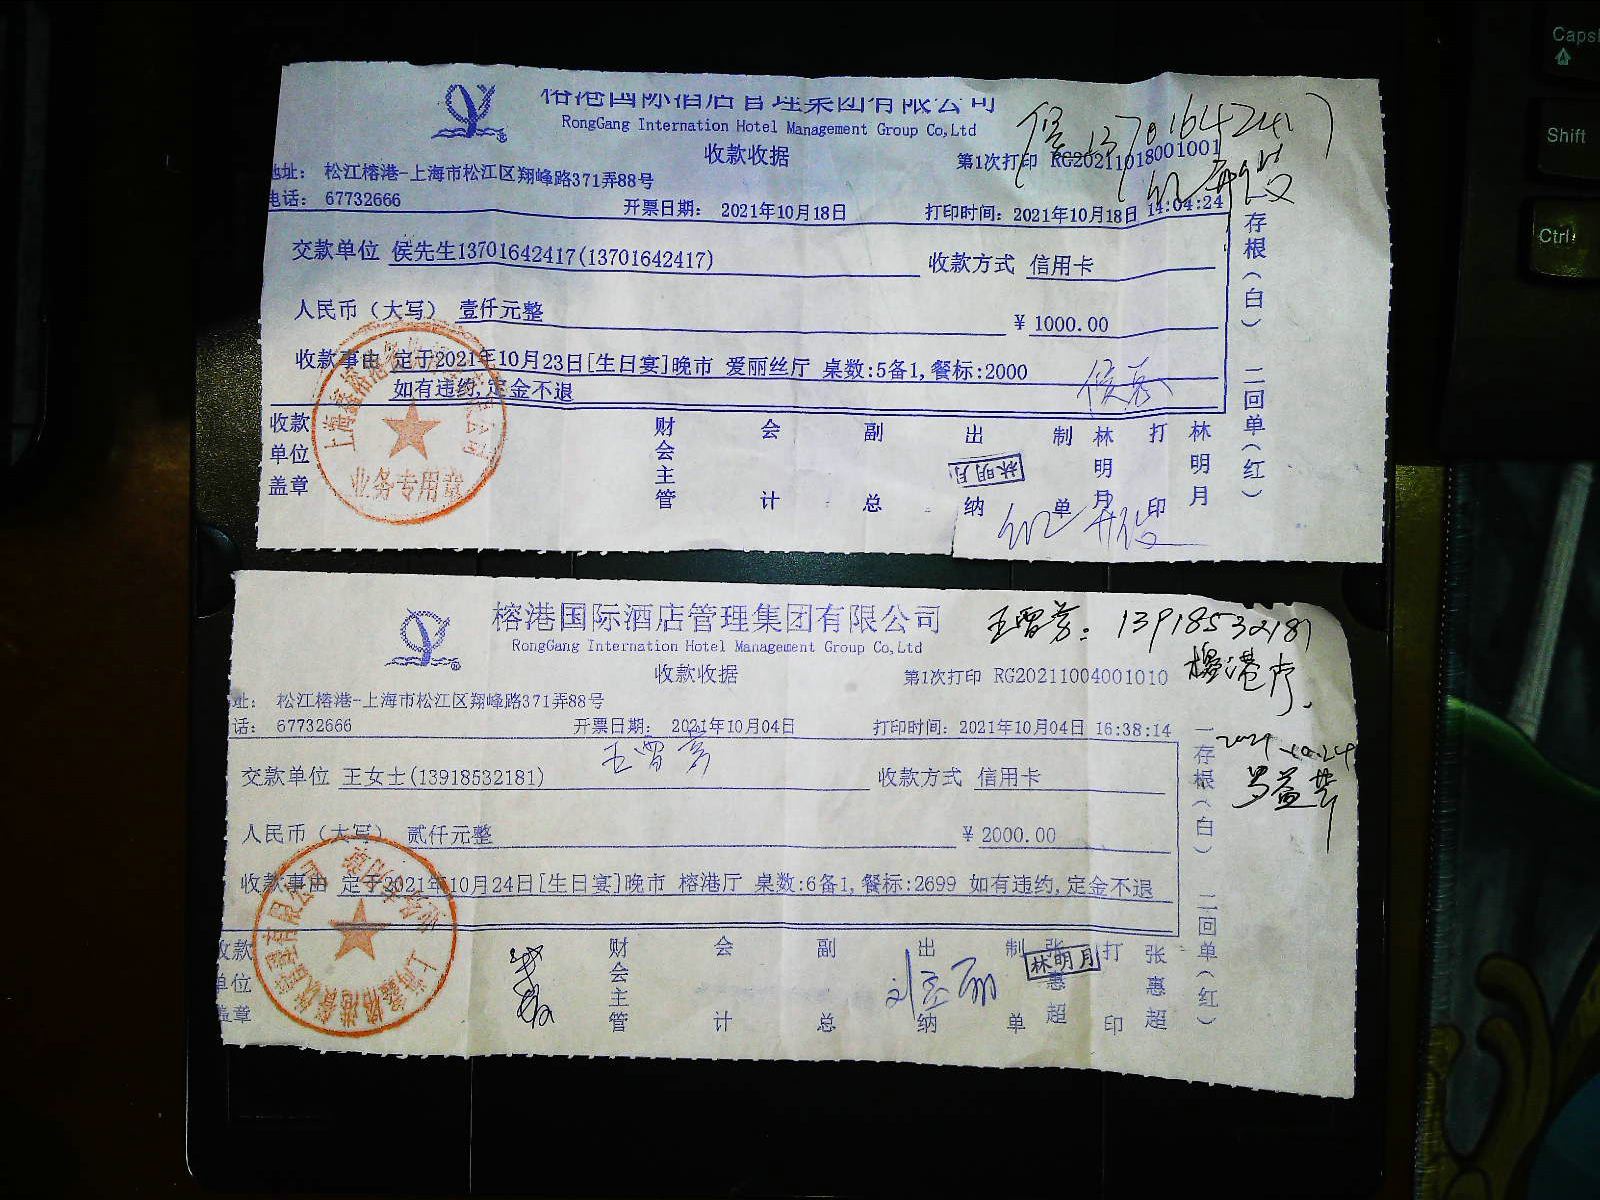 榕港国际酒店管理集团有限公司
RongGang Internation Hotel Management Group Co,Ltd
收款收据
第1次打印 RG20211018001001
侯 13701642417
地址: 松江榕港-上海市松江区翔峰路371弄88号
电话: 67732666
开票日期: 2021年10月18日
打印时间: 2021年10月18日 14:04:24
交款单位 侯先生13701642417(13701642417)
收款方式 信用卡
人民币(大写) 壹仟元整
¥ 1000.00
收款事由 定于2021年10月23日[生日宴]晚市 爱丽丝厅 桌数:5备1,餐标:2000
如有违约,定金不退
收款单位盖章
财会主管
会计
副总
出纳
林明月
制单
林明月
打印
林明月
一存根(白) 二回单(红)
业务专用章
榕港国际酒店管理集团有限公司
RongGang Internation Hotel Management Group Co,Ltd
收款收据
第1次打印 RG20211004001010
13918532181
榕港厅.
址: 松江榕港-上海市松江区翔峰路371弄88号
话: 67732666
开票日期: 2021年10月04日
打印时间: 2021年10月04日 16:38:14
2021.10.24
交款单位 王女士(13918532181)
收款方式 信用卡
人民币(大写) 贰仟元整
¥ 2000.00
收款事由 定于2021年10月24日[生日宴]晚市 榕港厅 桌数:6备1,餐标:2699 如有违约,定金不退
收款单位盖章
财会主管
会计
副总
出纳
制单
张惠超
林明月
打印
张惠超
一存根(白) 二回单(红)
Caps
Shift
Ctrl